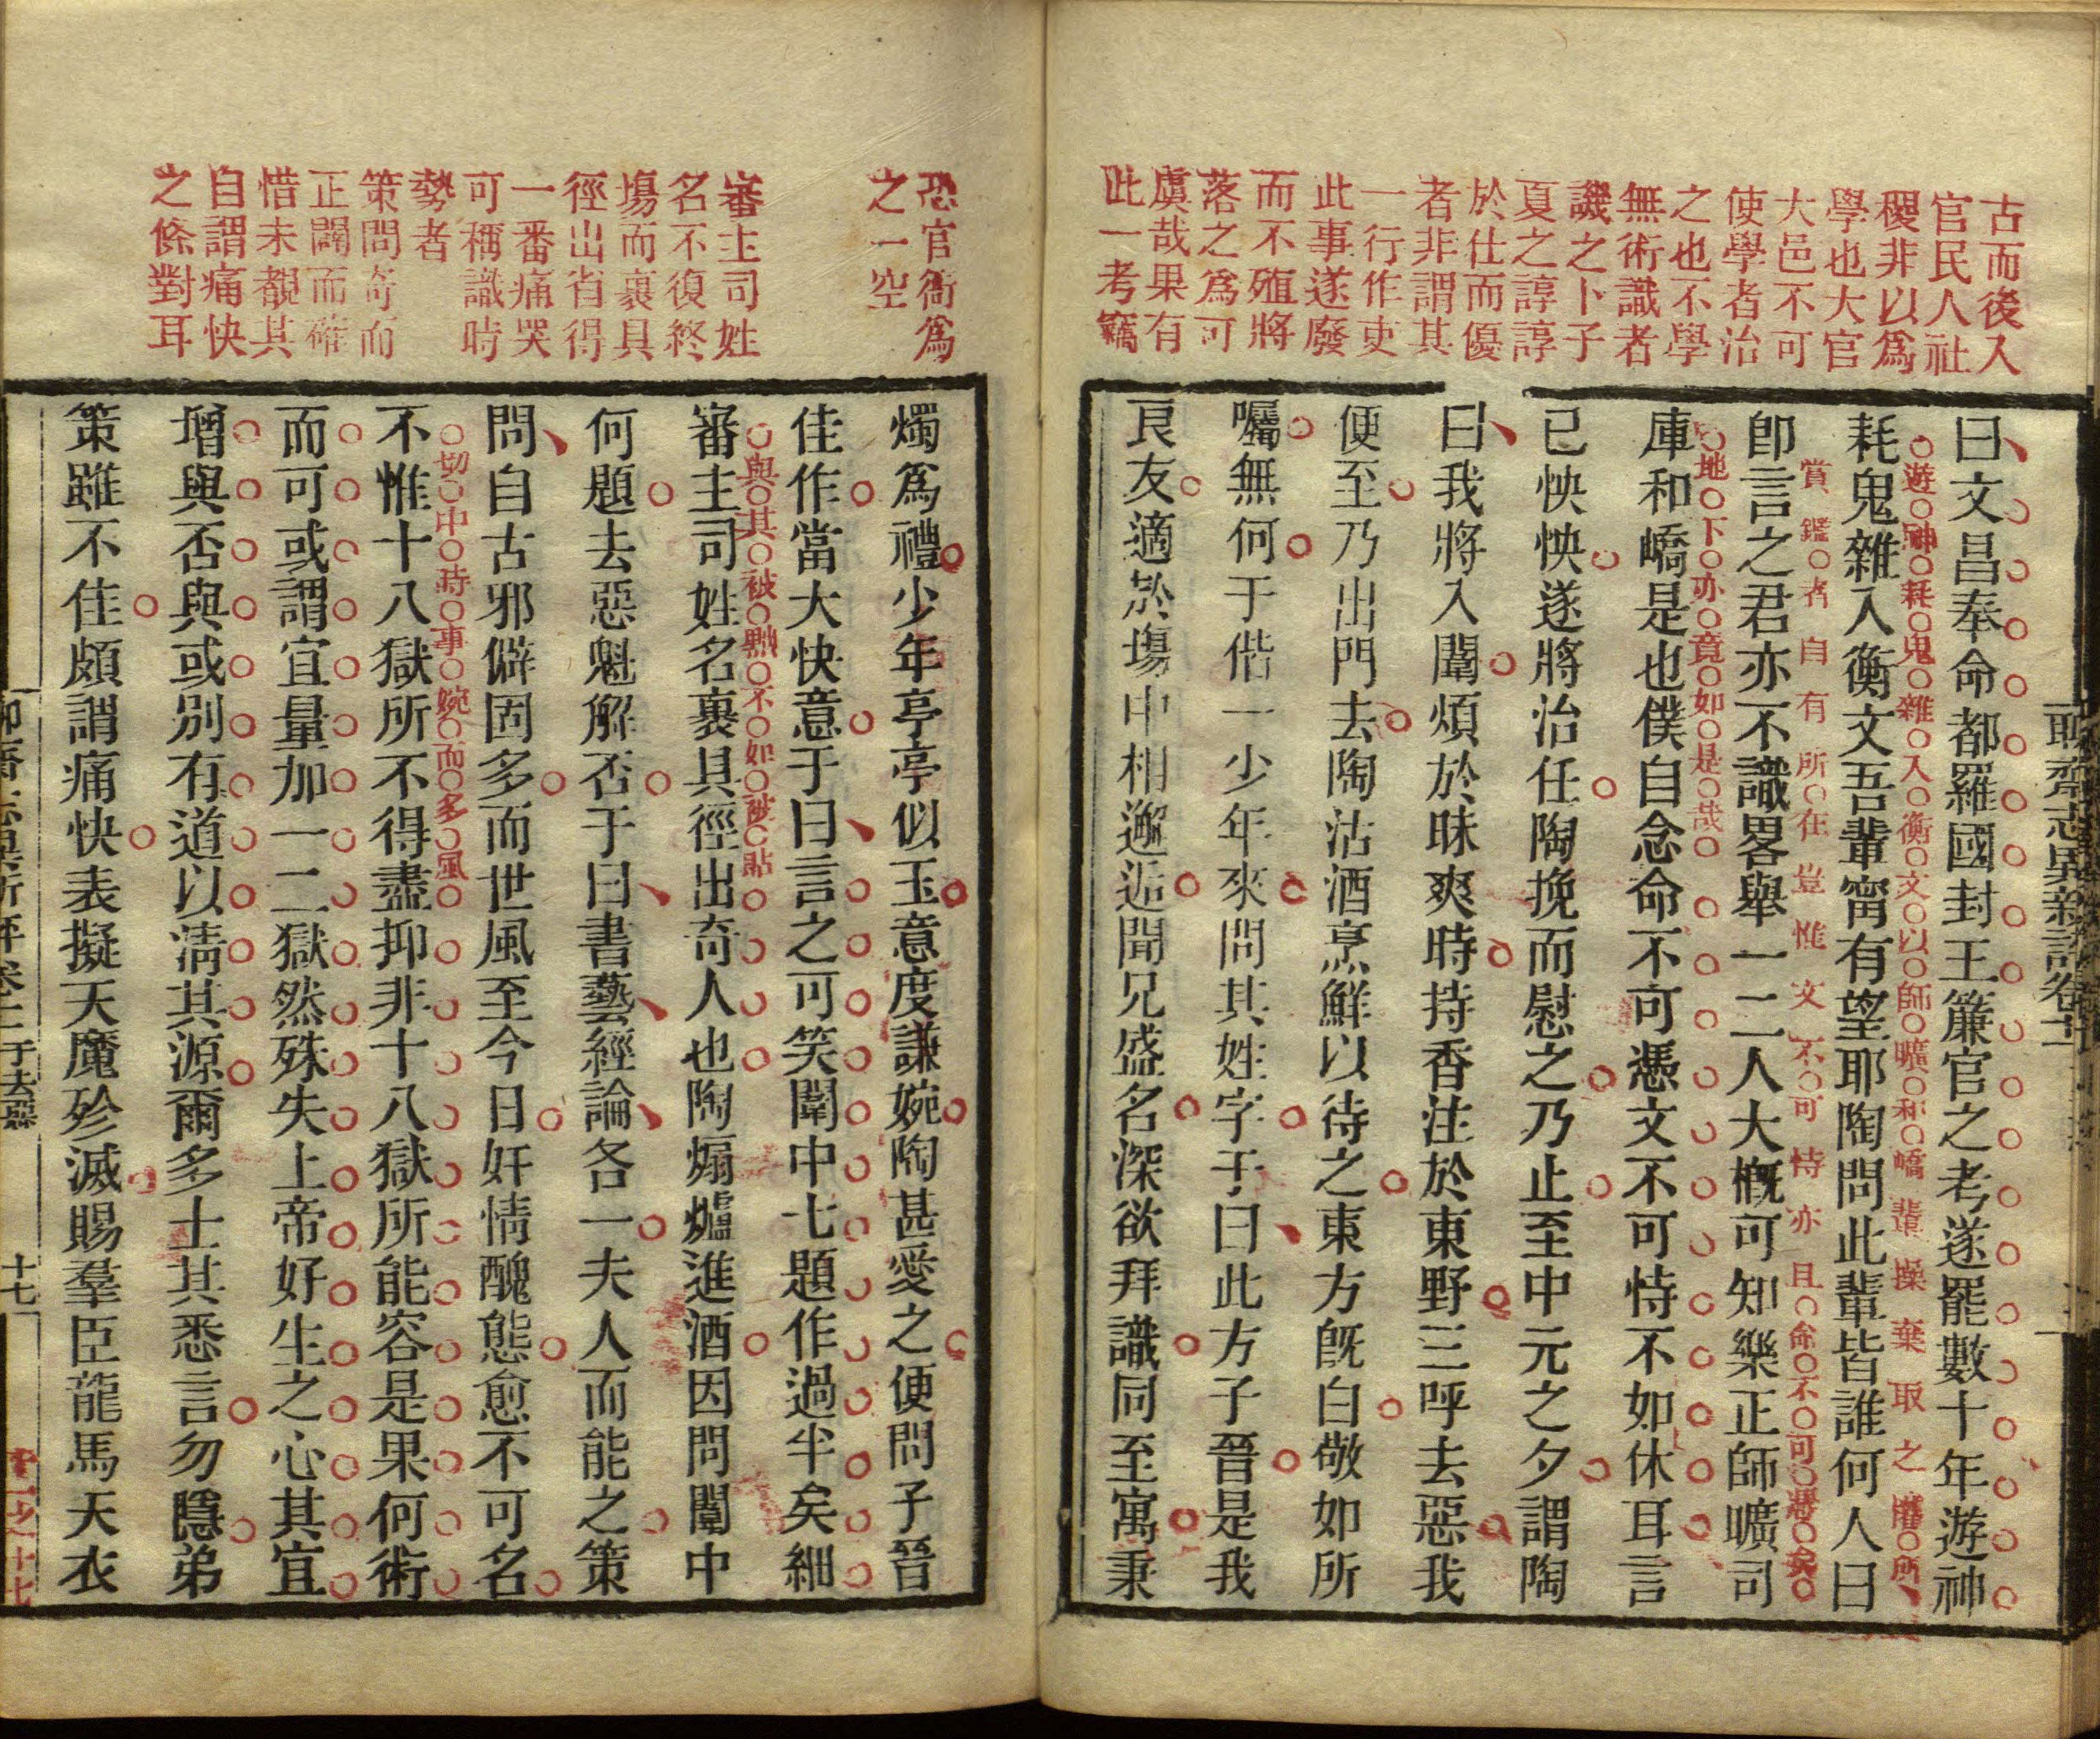 古而後入
官民人社
稷非以爲
學也大官
大邑不可
使學者治
之也不學
無術識者
譏之卜子
夏之諄諄
於仕而優
者非謂其
一行作吏
此事遂廢
而不殖將
落之爲可
虞哉果有
此一考竊
恐官衙爲
之一空
曰文昌奉命都羅國封王簾官之考遂罷數十年遊神
遊神耗鬼雜入衡文以師曠和嶠輩操棄取之權所
耗鬼雜入衡文吾輩甯有望耶陶問此輩皆誰何人曰
賞鑑者自有所在豈惟文不可恃亦且命不可憑矣
卽言之君亦不識畧舉一二人大概可知樂正師曠司
地下亦竟如是哉
庫和嶠是也僕自念命不可憑文不可恃不如休耳言
已怏怏遂將治任陶挽而慰之乃止至中元之夕謂陶
曰我將入闈煩於昧爽時持香炷於東野三呼去惡我
便至乃出門去陶沽酒烹鮮以待之東方旣白敬如所
囑無何于偕一少年來問其姓字于曰此方子晉是我
良友適於塲中相邂逅聞兄盛名深欲拜識同至寓秉
聊齋志異新評卷十二
審主司姓
名不復終
塲而裹具
徑出省得
一番痛哭
可稱識時
勢者
策問奇而
正闢而確
惜未覩其
自謂痛快
之條對耳
燭爲禮少年亭亭似玉意度謙婉陶甚愛之便問子晉
佳作當大快意于曰言之可笑闈中七題作過半矣細
與其被黜不如被貼
審主司姓名裹具徑出奇人也陶煽爐進酒因問闈中
何題去惡魁解否于曰書藝經論各一夫人而能之策
問自古邪僻固多而世風至今日奸情醜態愈不可名
切中時事婉而多風
不惟十八獄所不得盡抑非十八獄所能容是果何術
而可或謂宜量加一二獄然殊失上帝好生之心其宜
增與否與或別有道以淸其源爾多士其悉言勿隱弟
策雖不佳頗謂痛快表擬天魔殄滅賜羣臣龍馬天衣
于去惡
十七